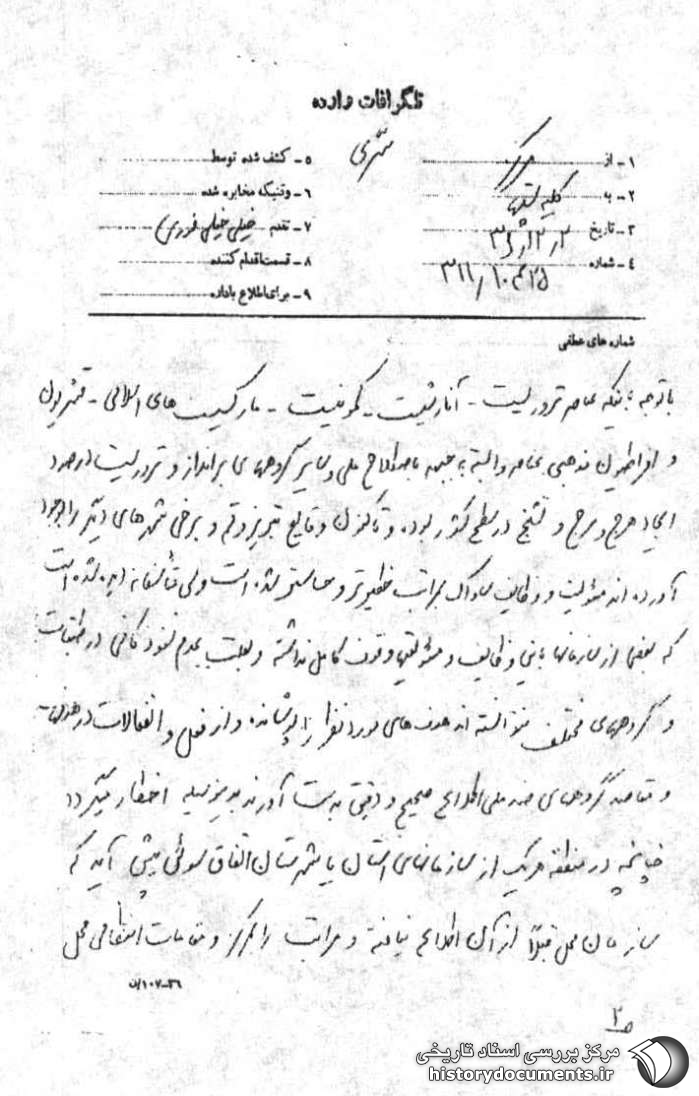 تلگرافات وارده
سرّی
۱ - از مرکز
۲ - به کلیه
۳ - تاریخ
۴ - شماره ۳۱۱/
۵ - کشف شده توسط
۶ - وقتیکه مخابره شده
۷ - تقدم خیلی خیلی فوری
۸ - قسمت اقدام کننده
۹ - برای اطلاع باداره
شماره های عطفی
باتوجه باینکه عناصر تروریست - آنارشیست - کمونیست - مارکسیست های اسلامی - قشریون
و افراطیون مذهبی عناصر وابسته به جبهه باصطلاح ملی و سایر گروههای برانداز و تروریست درصدد
ایجاد هرج و مرج و تشنج در سطح کشور بوده و تاکنون وقایع تبریز و قم و برخی شهرهای دیگر را بوجود
آورده اند مسئولیت و وظایف ساواک بمراتب خطیرتر و حساستر شده است ولی متأسفانه دیده شده است
که بعضی از سازمانها باین وظایف و مسئولیتها وقوف کامل نداشته و بعلت عدم نفوذ کافی در طبقات
و گروههای مختلف نتوانسته اند هدف های مورد نظر را بپوشانند و از فعل و انفعالات در
و مقاصد گروههای ضد ملی اطلاع صحیح و دقیق بدست آورند بدینوسیله اخطار میگردد
چنانچه در منطقه هریک از سازمانهای استان یا شهرستان اتفاق سوئی پیش آید که
سازمان محل قبلاً از آن اطلاع نیافته و مراتب را بمرکز و مقامات انتظامی محل
۳۶-۱۰۷/ن
۲
مرکز بررسی اسناد تاریخی
historydocuments.ir